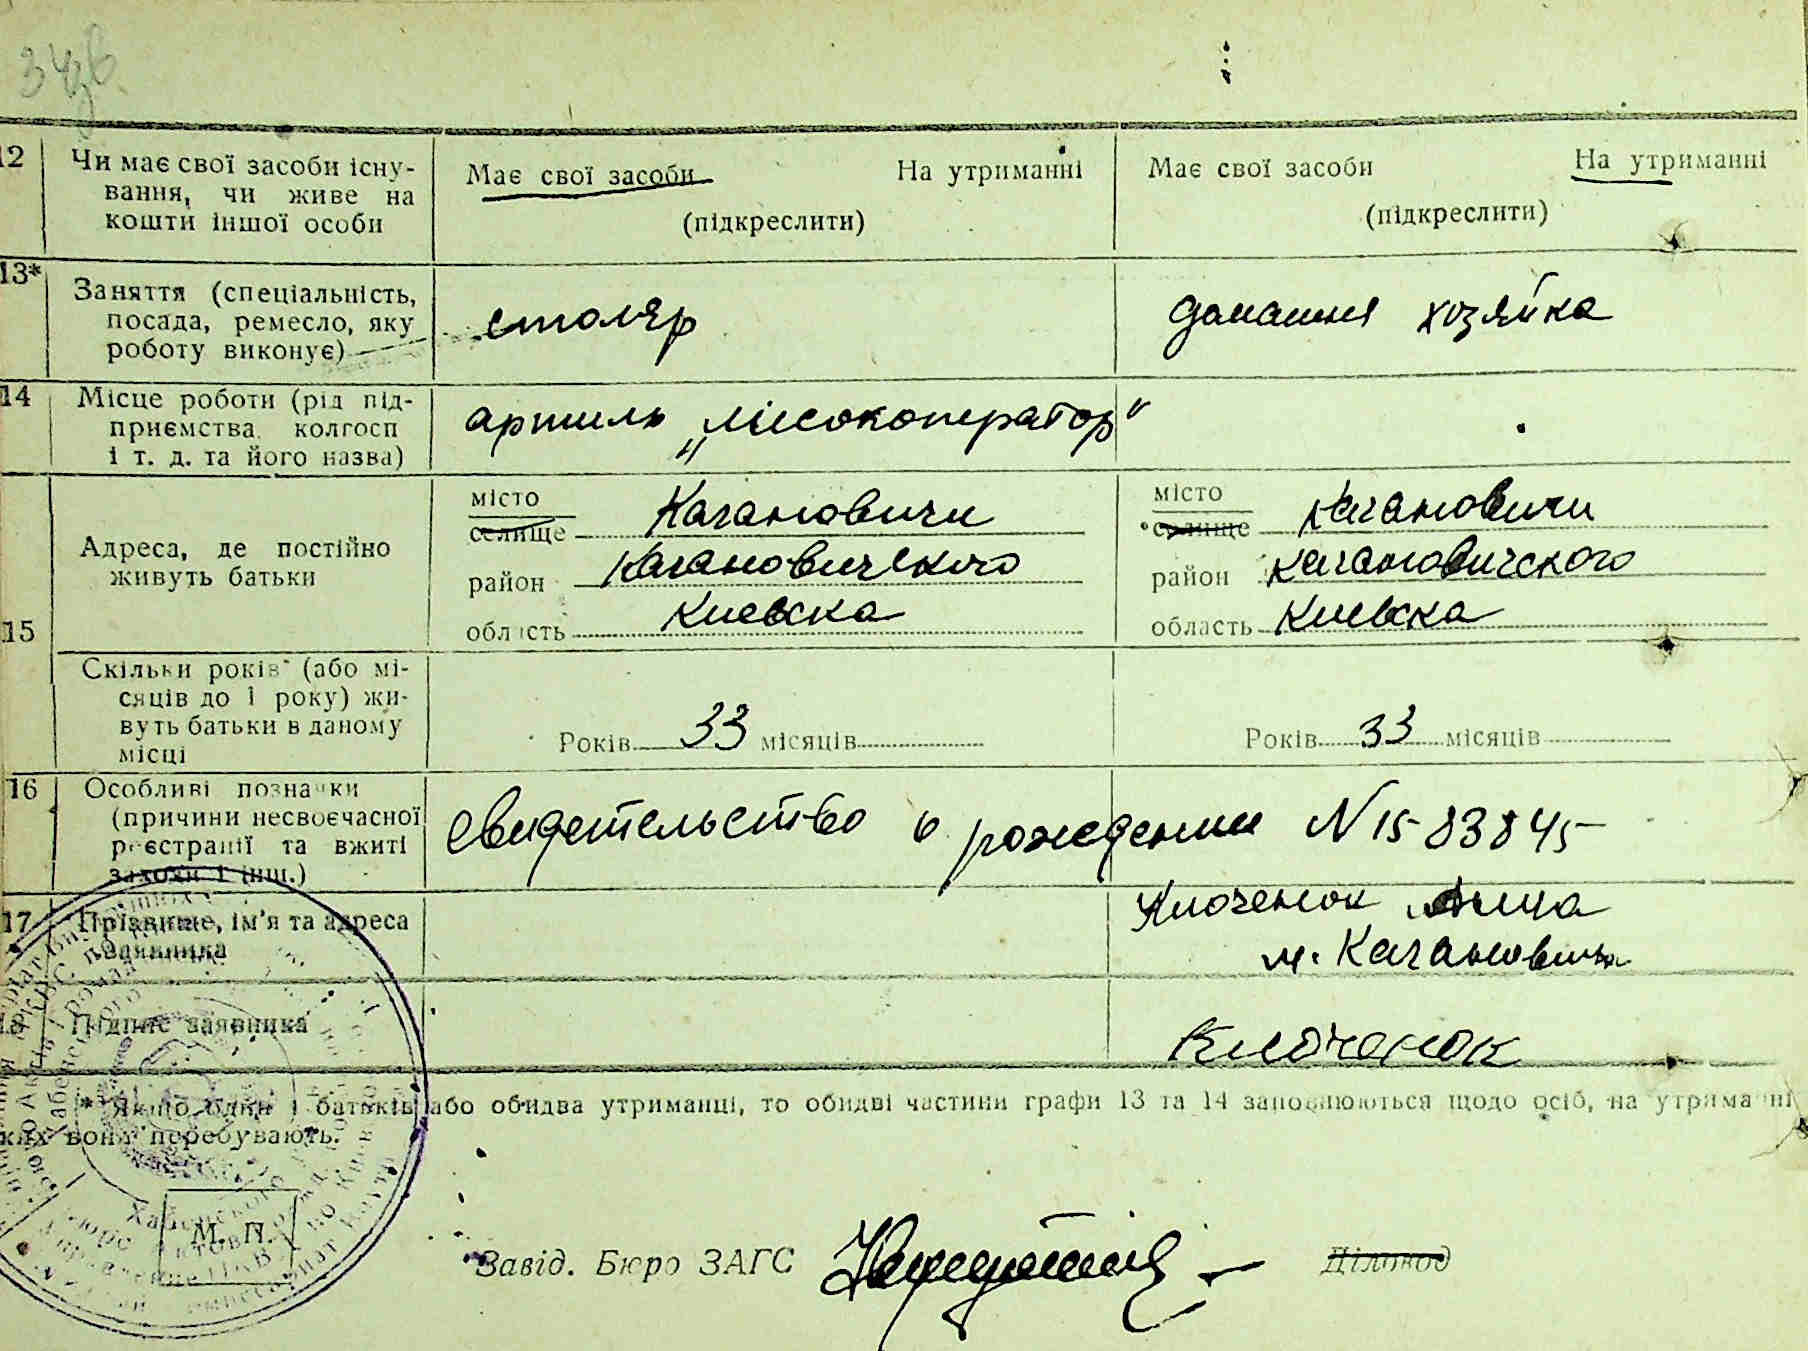 12 Чи має свої засоби існу-
вання, чи живе на
кошти іншої особи
Має свої засоби На утриманні
(підкреслити)
Має свої засоби На утриманні
(підкреслити)
13* Заняття (спеціальність,
посада, ремесло, яку
роботу виконує)
столяр
домашня хозяйка
14 Місце роботи (рід під-
приємства, колгосп
і т. д. та його назва)
артиль „Лісокоператор"
15 Адреса, де постійно
живуть батьки
місто
селище Кагановичи
район Кагановичского
область Киевска
місто
селище Кагановичи
район Кагановичского
область Киевска
Скільки років (або мі-
сяців до 1 року) жи-
вуть батьки в даному
місці
Років 33 місяців
Років 33 місяців
16 Особливі позначки
(причини несвоєчасної
реєстрації та вжиті
заходи і інш.)
свидетельство о рождении N 1583845
17 Прізвище, ім'я та адреса
заявника
Клоченок Анна
м. Кагановичи
18 Підпис заявника
Клоченок
* Якщо один з батьків або обидва утриманці, то обидві частини графи 13 та 14 заповнюються щодо осіб, на утриманні
яких вони перебувають.
М. П.
Завід. Бюро ЗАГС
Діловод